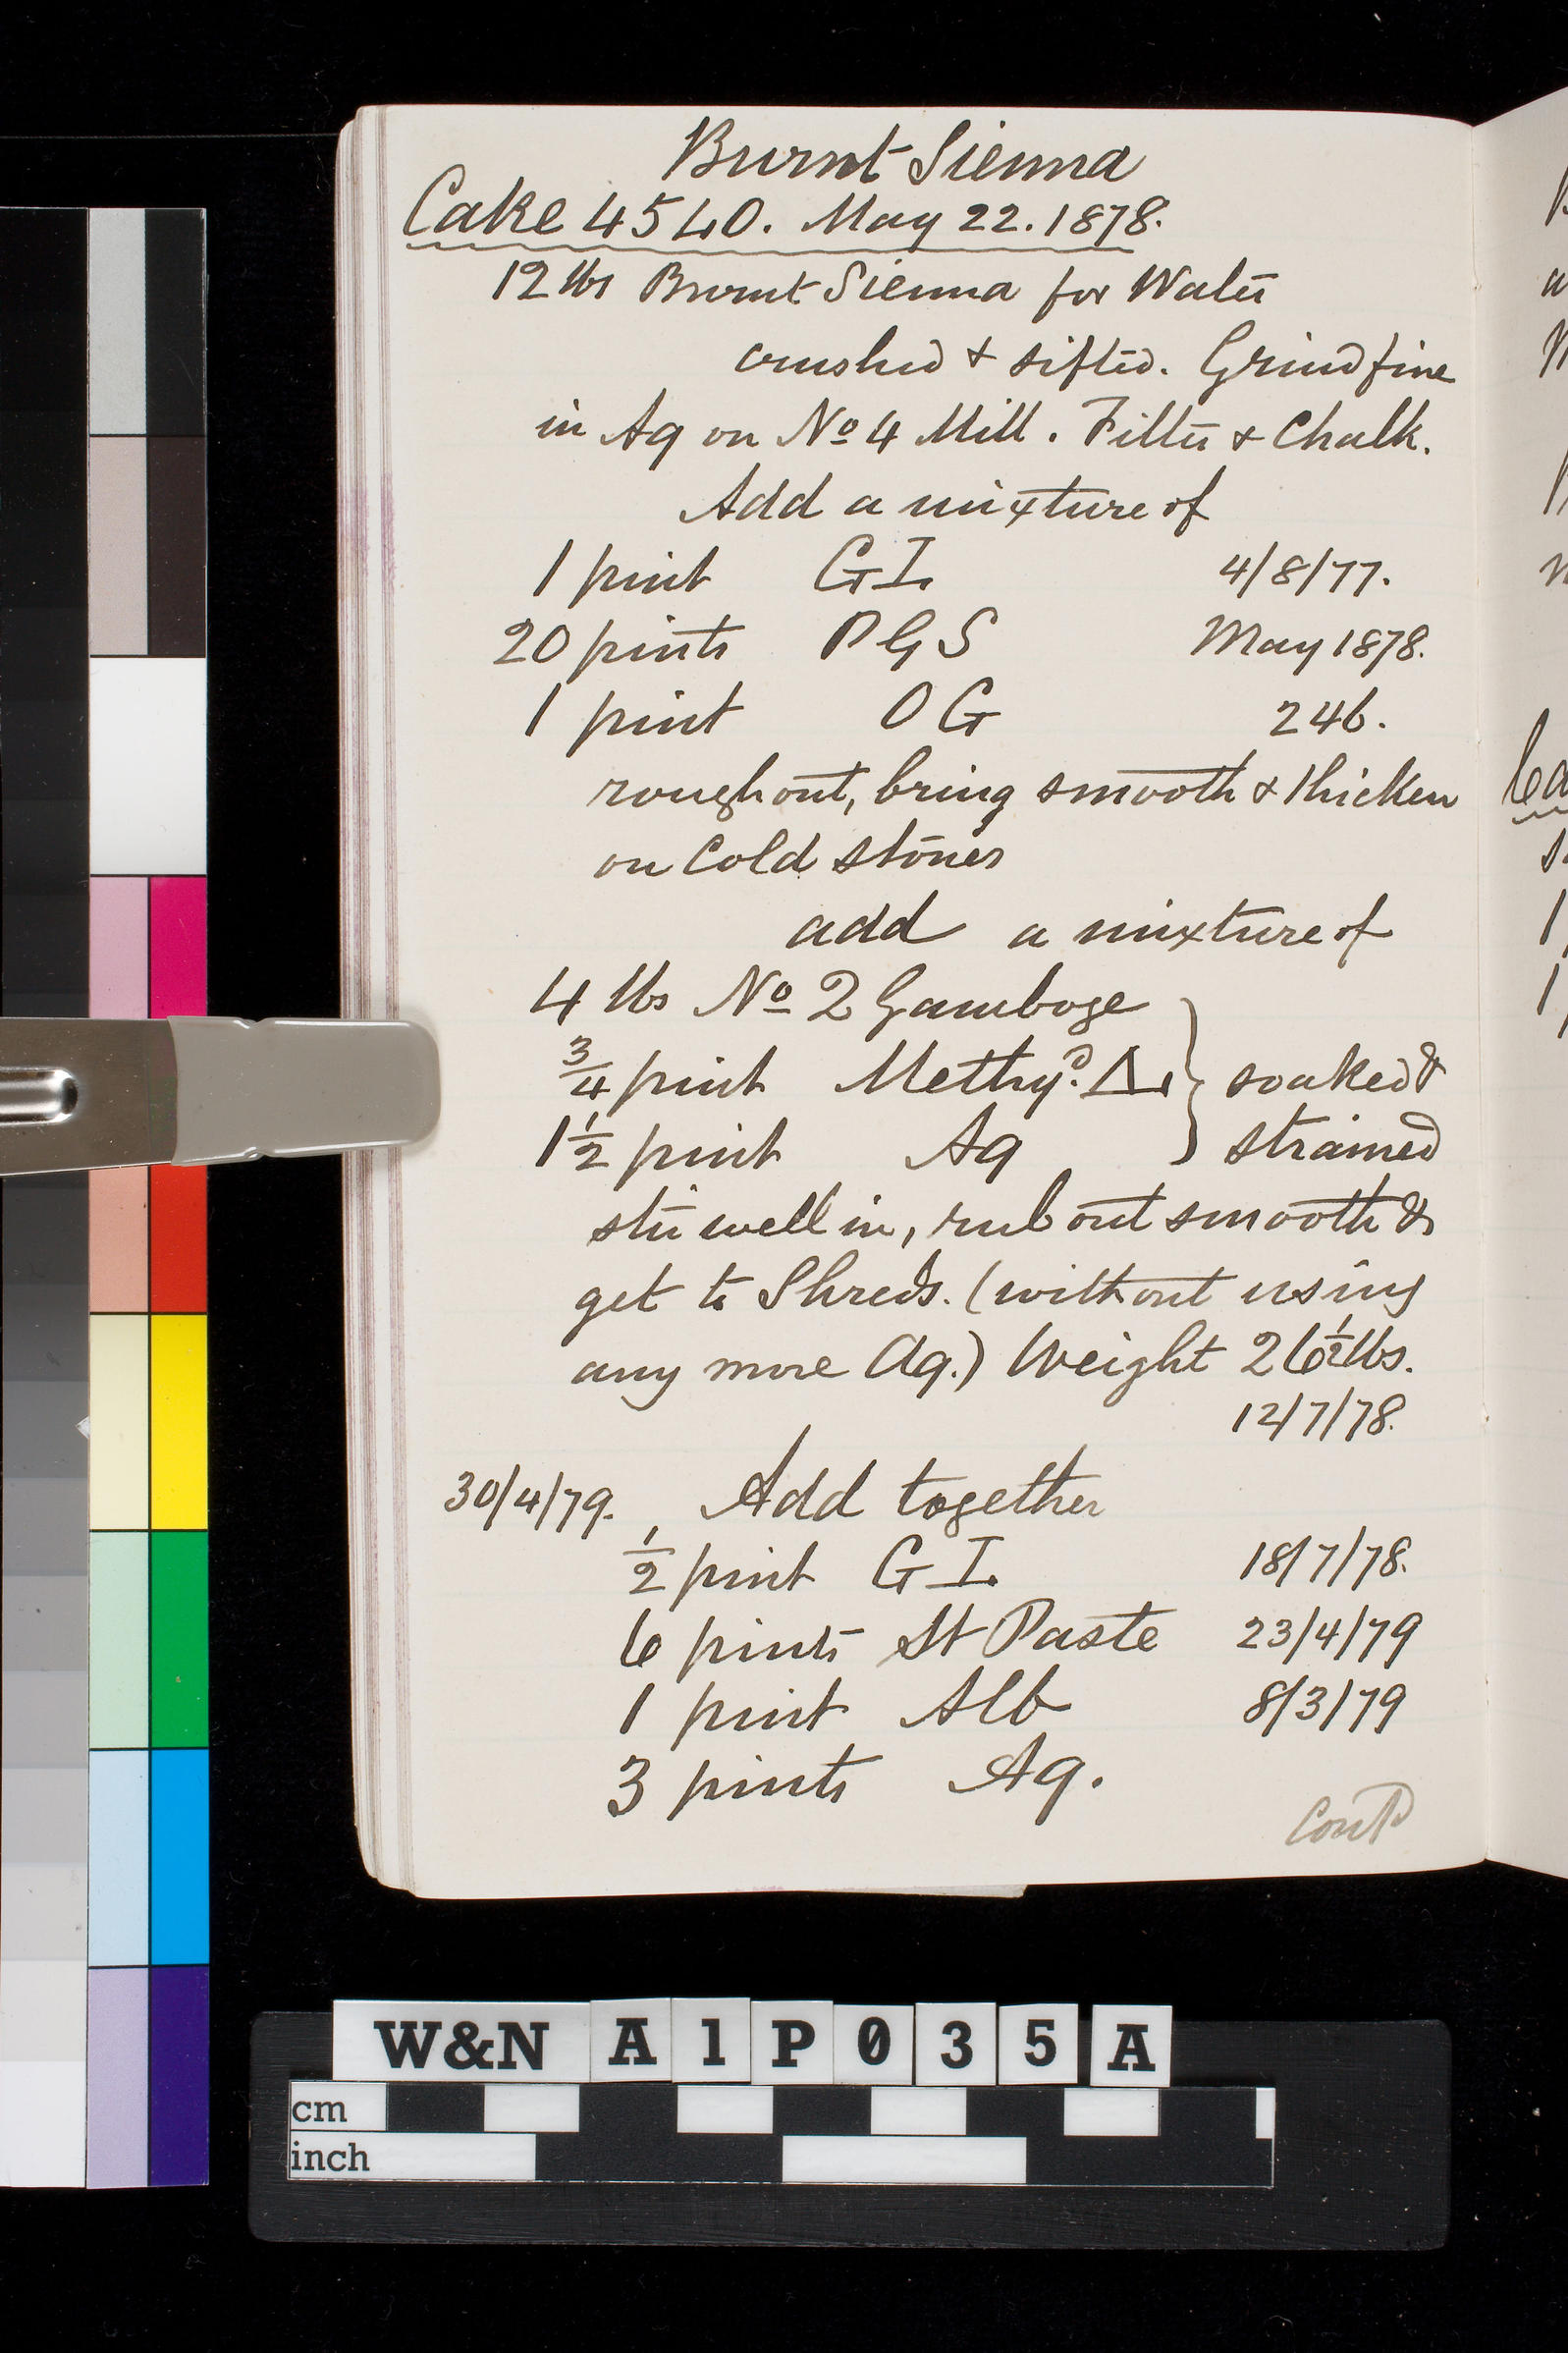 Burnt Sienna
Cake 4540. May 22. 1878.
12 lbs Burnt Sienna for Water
crushed & sifted. Grind fine
in Aq on No 4 Mill. Filter & Chalk.
Add a mixture of
1 pint GI. 4/8/77.
20 pints PGS May 1878.
1 pint OG 246.
rough out, bring smooth & thicken
on Cold stones
add a mixture of
4 lbs No 2 Gamboge
3/4 pint Methyd. Δ. } soaked &
1 1/2 pint Aq } strained
stir well in, rub out smooth &
get to Shreds. (without using
any more Aq.) Weight 26 1/2 lbs.
12/7/78.
30/4/79. Add together
1/2 pint GI. 18/7/78.
6 pints St Paste 23/4/79
1 pint Alb 8/3/79
3 pints Aq.
Contd
W&N A1P035A
cm
inch